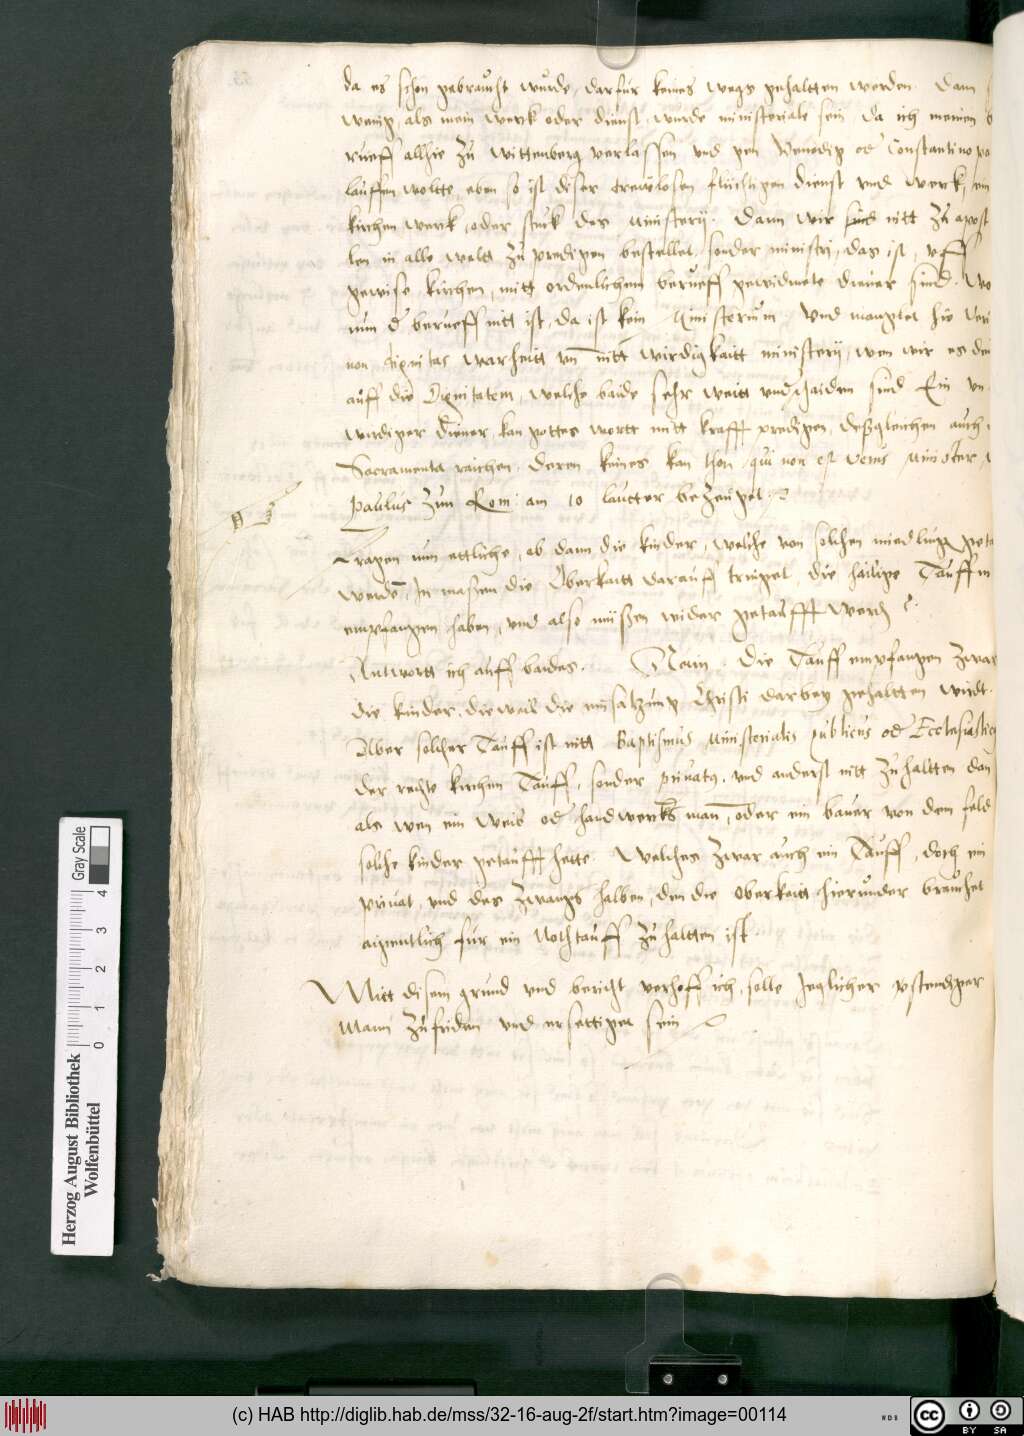 da es schon gebraucht wurde, darfür keines wegs gehaltten werden. Dann
wenig als mein werk oder dienst wurde ministeriale sein, da ich meinen
rueff allhie zu Wittenberg verlassen und gen Venedig od Constantinopo
lauffen woltte, eben so ist diser trewlosen flüchtigen dienst und werk, ein
kirchen werk, oder stuck des Ministerij. Dann wir sind nitt zu apost
len in alle weltt zu predigen bestellet, sonder ministri, das ist, vff
gewise kirchen, mitt ordenlichem berueff gewidmete diener sind. Wo
nun d berueff nitt ist, da ist kein Ministerium. Und manglet hie veri
non dignitas warheitt vn nitt wirdigkaitt ministerij, wen wir es den
auff die Dignitatem, welche baide sehr weitt underschaiden sind. Ein vn
wirdiger diener, kan gottes wortt mitt krafft predigen, deßgleichen auch
Sacramenta raichen, deren keines kan thon, qui non est verus Minister,
Paulus zun Rom: am 10 lautter bezeuget.
Fragen nun ettliche, ob dann die kinder, welche von solchen miedling geta
werden, In massen die Oberkaitt darauff tringet, die hailige Tauff
empfangen haben, und also müssen wider getaufft werden?
Antwortt ich auff baides. Nein. Die Tauff empfangen zwar
die kinder, dieweil die einsatzung Christi darbey gehaltten wirdt.
Aber solcher Tauff ist nitt Baptismus Ministerialis publicus od Ecclesiastic
der rechte kirchen Tauff, sonder privatus, und anderst nitt zu haltten dan
als wen ein Weib od handwerks man, oder ein bauer von dem feld
solche kinder getaufft hette. Welches zwar auch ein Tauff, doch ein
privat, und des zwangs halben, den die Oberkaitt hierunder brauchet
aigentlich für ein Nothtauff zu haltten ist.
Mitt disem grund und bericht verhoff ich, solle Jeglicher vstendiger
Mann zufriden und ersettiget sein
Herzog August Bibliothek
Wolfenbüttel
Gray Scale
0 1 2 3 4
(c) HAB http://diglib.hab.de/mss/32-16-aug-2f/start.htm?image=00114
cc BY SA